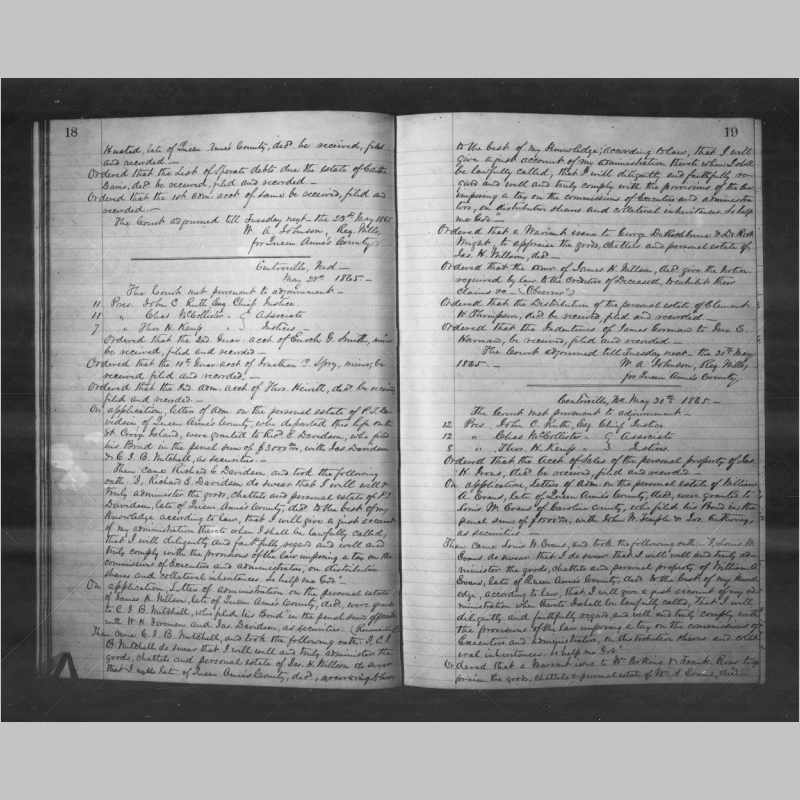 18
Husted, late of Queen Anne's County, decd. be received, filed
and recorded. —
Ordered that the List of Sperate debts due the estate of
Davis, decd. be received, filed and recorded —
Ordered that the 1st adm. acct of same be received, filed and
recorded —
The Court adjourned till Tuesday next the 23d May 1865
W. A. Johnson, Reg. Wills,
for Queen Anne's County
Centreville, Md —
May 23d 1865 —
The Court met pursuant to adjournment —
11 Pres. John C. Ruth Esq Chief Justice
11 " Chas McCollister " } Associate
7 " Thos. H. Kemp " } Justices —
Ordered that the 2nd Guar. acct of Enoch G. Smith,
be received, filed and recorded —
Ordered that the 10th Guar acct of Jonathan C. Spry, minor, be
received filed and recorded, —
Ordered that the 2nd. adm. acct of Thos. Hewitt, decd. be received
filed and recorded —
On application, letters of adm. on the personal estate of P. S. Da-
vidson of Queen Anne's County, who departed this life on the
at Craig Island, were granted to Richd. E. Davidson, who filed
his Bond in the penal sum of $3000.00, with Jas Davidson
& C. I. B. Mitchell, as securities. —
Then came Richard E. Davidson, and took the following
oath, I, Richard E. Davidson do swear that I will well &
truly administer the goods, chattels and personal estate of P. S.
Davidson, late of Queen Anne's County, decd to the best of my
knowledge according to law, that I will give a just account
of my administration thereto when I shall be lawfully called,
that I will diligently and faithfully regard and well and
truly comply with the provisions of the law imposing a tax on the
commissions of Executors and administrators, on distributive
shares and collateral inheritances. So help me God".
On application, Letters of administration on the personal estate
of James K. Willson, late of Queen Anne's County, decd, were granted
to C. I. B. Mitchell, who filed his Bond in the penal sum of
with W. H. and Jas. Davidson, as securities.
Then came C. I. B. Mitchell, and took the following oath: I, C. I.
B. Mitchell do swear that I will well and truly administer the
goods, chattels and personal estate of Jas. K. Willson
that I will late of Queen Anne's County, decd, according
19
to the best of my Knowledge, according to law, that I will
give a just account of my administration thereto when I shall
be lawfully called, that I will diligently and faithfully re-
gard and well and truly comply with the provisions of the law
imposing a tax on the commissions of Executors and administra-
tors, on distributive shares and collateral inheritances. So help
me God"—
Ordered that a Warrant issue to George & Dr.
Wright, to appraise the goods, chattels and personal estate of
Jas. K. Willson, decd —
Ordered that the admr. of James K. Willson, decd give the Notice
required by law to the Creditors of Deceased, to exhibit their
claims &c — (Observer")
Ordered that the Distribution of the personal estate of Clement
W. Thompson, decd be received, filed and recorded —
Ordered that the Indentures of James Gorman to Geo. E.
Harman, be received, filed and recorded —
The Court adjourned till Tuesday next — the 30th May
1865 —
W. A. Johnson, Reg Wills,
for Queen Anne's County.
Centreville, Md. May 30th 1865 —
The Court met pursuant to adjournment —
12 Pres. John C. Ruth, Esq Chief Justice
12 " Chas McCollister " } Associate
8 " Thos. H. Kemp " } Justices
Ordered that the Acct of Sales of the personal property of Jas.
H. decd, be received, filed and recorded —
On application, letters of Adm. on the personal estate of William
A. Evans, late of Queen Anne's County, decd, were granted to
Louis W. Evans of Caroline County, who filed his Bond in the
penal sum of $ with John W. Temple & Jos.
as securities —
Then came Louis W. Evans, and took the following oath: "I, Louis W.
Evans do swear, that I do swear that I will well and truly ad-
minister the goods, chattels and personal property of William A.
Evans, late of Queen Anne's County, decd. to the best of my knowl-
edge, according to law, that I will give a just account of my ad-
ministration when thereto I shall be lawfully called, that I will
diligently and faithfully regard and well and truly comply with
the provisions of the law imposing a tax on the commissions of
Executors and administrators, on distributive shares and collat-
eral inheritances. So help me God"
Ordered that a Warrant issue to Wm Perkins & Frank Rowe to ap-
praise the goods, chattels & personal estate of Wm A Evans, decd —